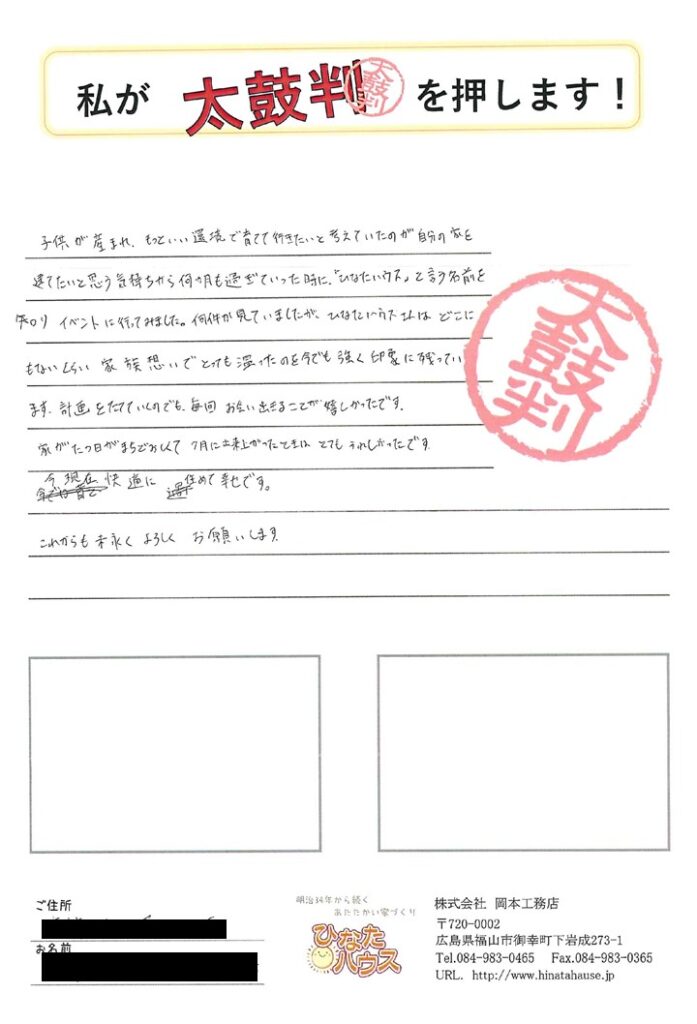 私が 太鼓判 を押します！
太鼓判
子供が産まれ、もっといい環境で育てて行きたいと考えていたのが自分の家を
建てたいと思う気持ちから何ヶ月も過ぎていった時に、"ひなたハウス"と言う名前を
知り イベントに行ってみました。何件か見ていましたが、ひなたハウスさんは どこに
もないくらい 家族想いで とっても温ったのを今でも強く印象に残ってい
ます。計画をたてていくのでも、毎回 お会い出来ることが嬉しかったです。
家がたつ日がまちどおしくて 7月に出来上がったときは とても うれしかったです。
今現在 快適に 住めて幸せです。
これからも末永く よろしく お願いします
太鼓判
ご住所
お名前
明治34年から続く
あたたかい家づくり
ひなた
ハウス
株式会社 岡本工務店
〒720-0002
広島県福山市御幸町下岩成273-1
Tel.084-983-0465 Fax.084-983-0365
URL. http://www.hinatahause.jp